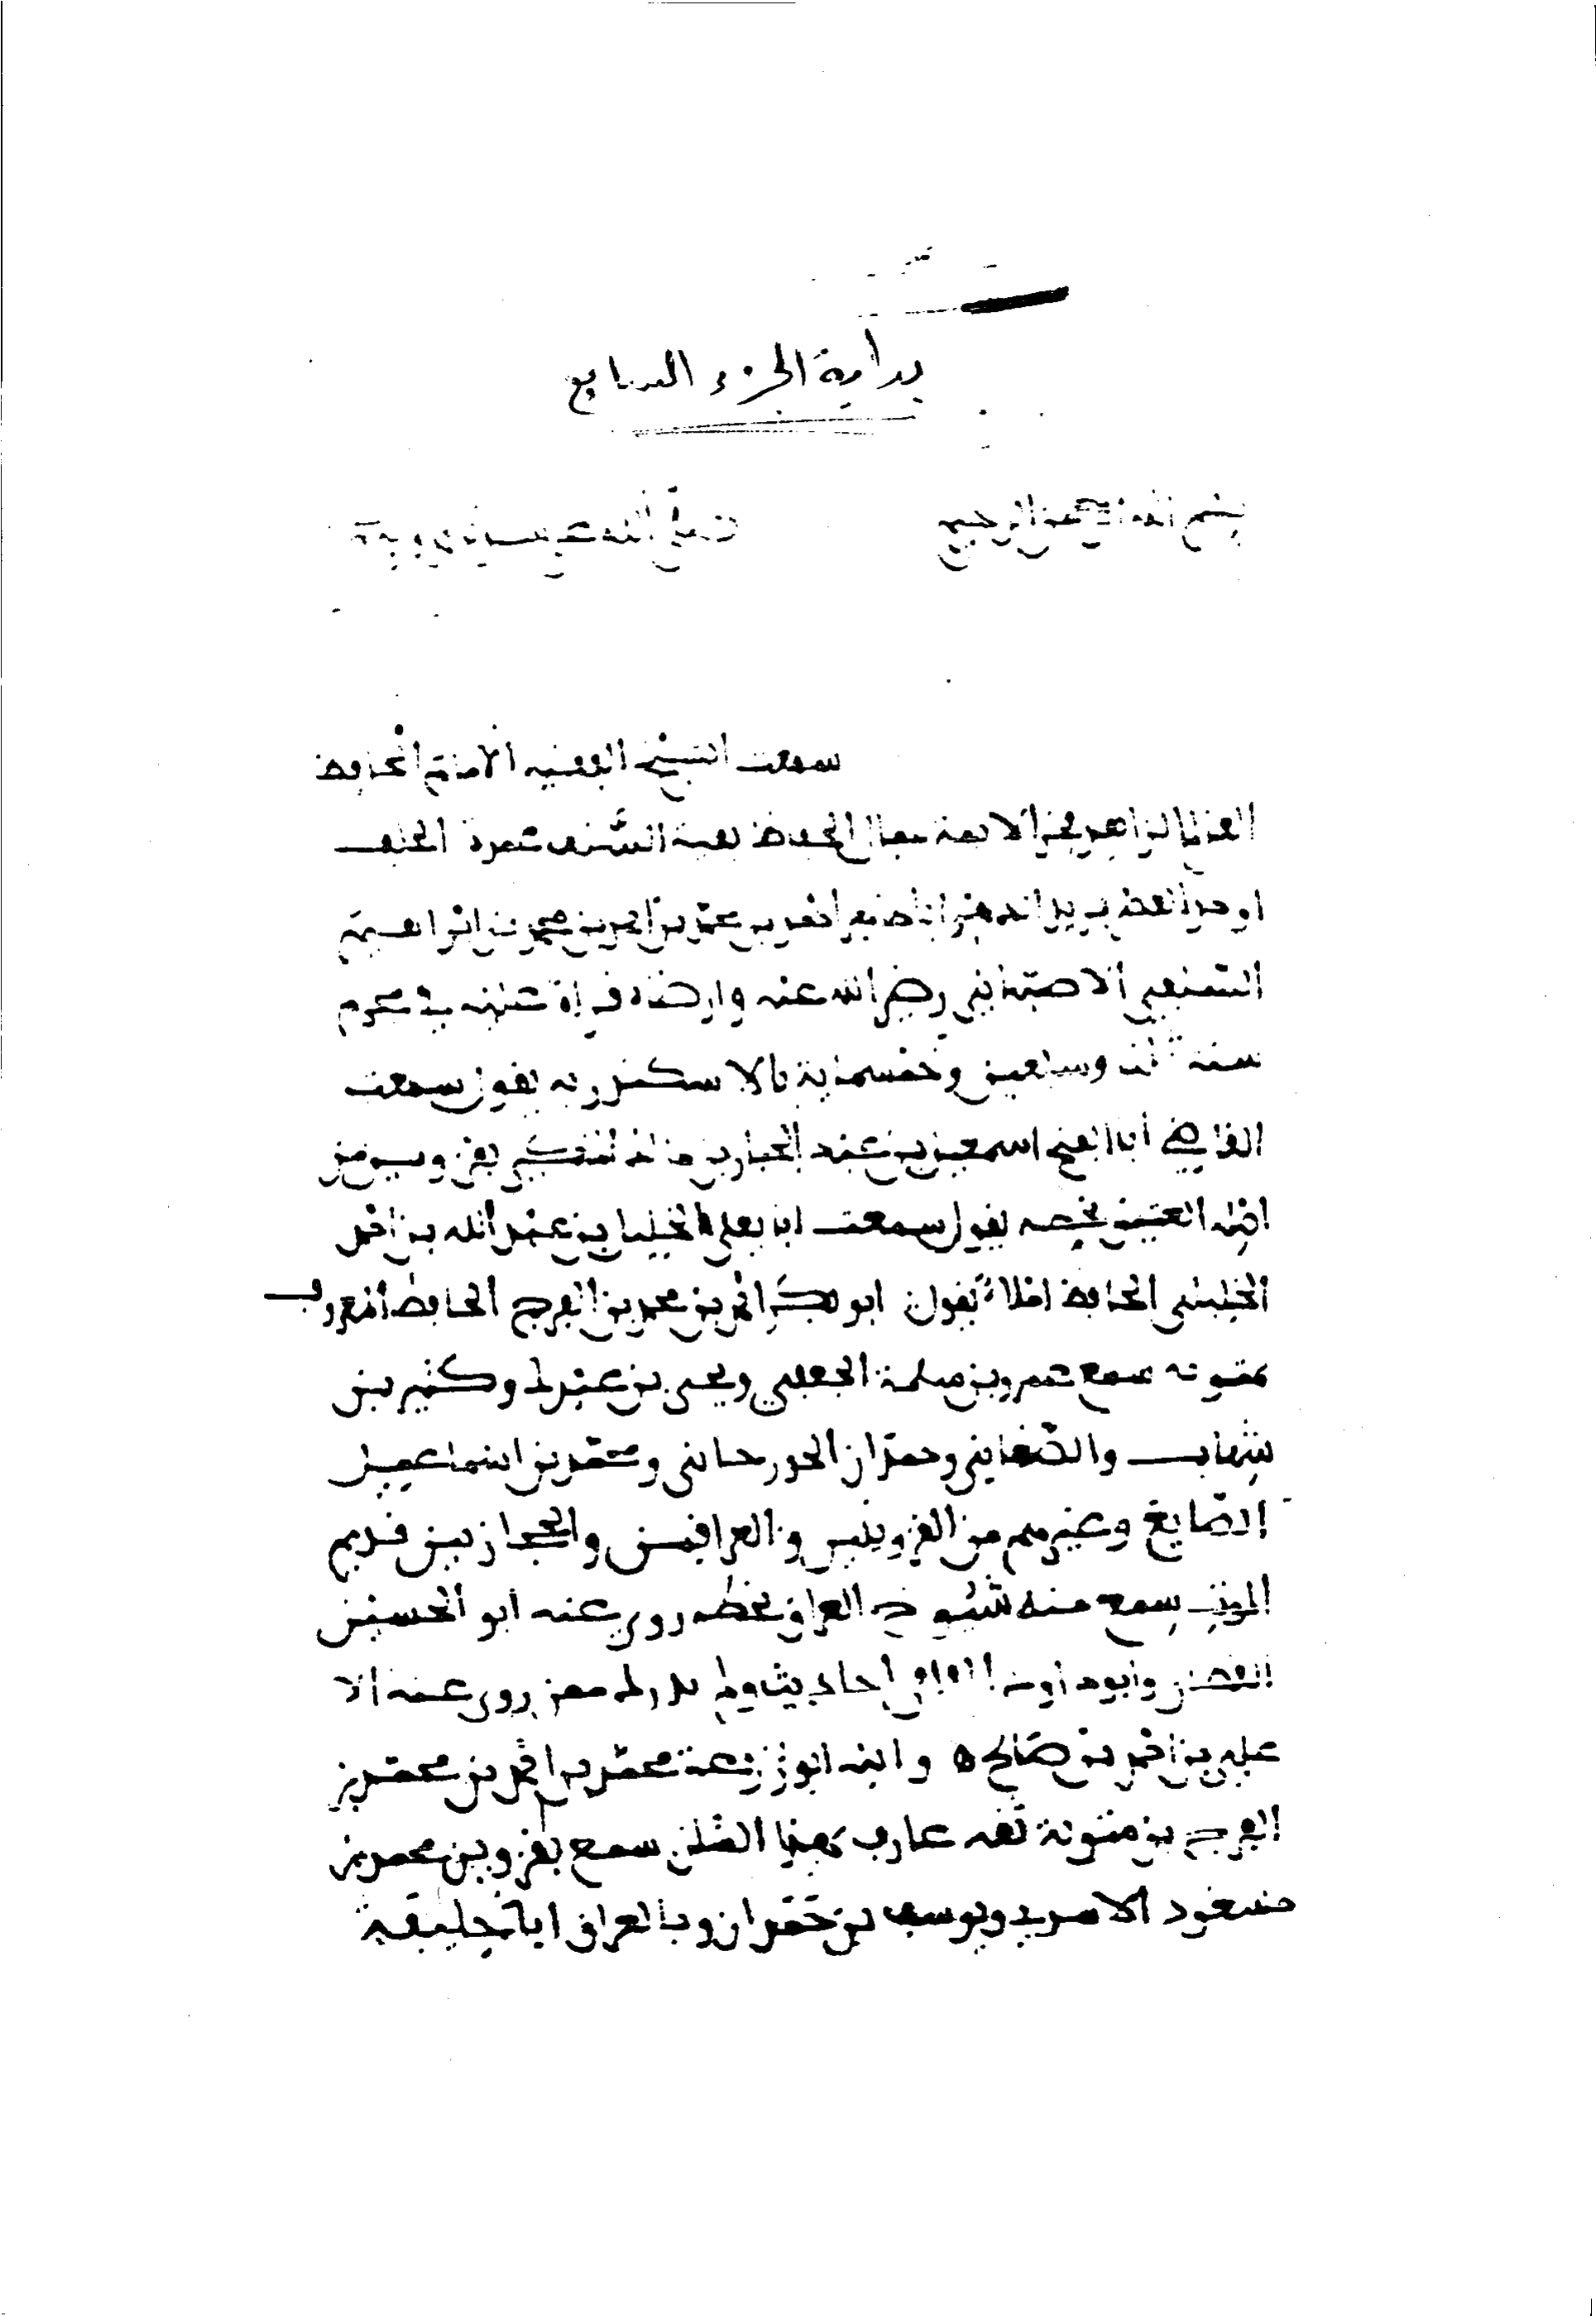 بداية الجزء السابع
بسم الله الرحمن الرحيم صلى الله على سيدنا
سمعت الشيخ الفقيه الامام الحافظ
الزاهد فخر الائمة جمال الحفاظ بقية السلف عمدة الخلف
اوحد العصر فريد الدهر ابا طاهر احمد بن محمد بن احمد بن محمد بن ابراهيم
السلفي الاصبهاني رضي الله عنه وارضاه قراة عليه في محرم
سنة وسبعين وخمسماية بالاسكندرية يقول سمعت
القاضي ابا الفتح اسمعيل بن عبد الجبار بن بقزوين من
اصل العتيق بخطه يقول سمعت ابا يعلى الخليل بن عبد الله بن احمد
الخليلي الحافظ املاء يقول ابو بكر احمد بن محمد بن الفرج الحافظ المعروف
بمتويه سمع عمرو بن سلمة الجعفي ويحيى بن عبدك وكثير بن
شهاب والصغاني وحمدان الجورجاني ومحمد بن اسماعيل
الصايغ وغيرهم من القزوينين والعراقيين والحجازيين قديم
الموت سمع منه شيوخ العراق بخطه روى عنه ابو الحسين
القطان وابو داود الفامي احاديث ولم يدرك ممن روى عنه الا
علي بن احمد بن صالح ه وابنه ابو زرعة محمد بن احمد بن محمد بن
الفرج بن متوية ثقه عارف بهذا الشان سمع بقزوين محمد بن
مسعود الاسدي ويوسف بن حمدان وبالعراق ابا خليفة